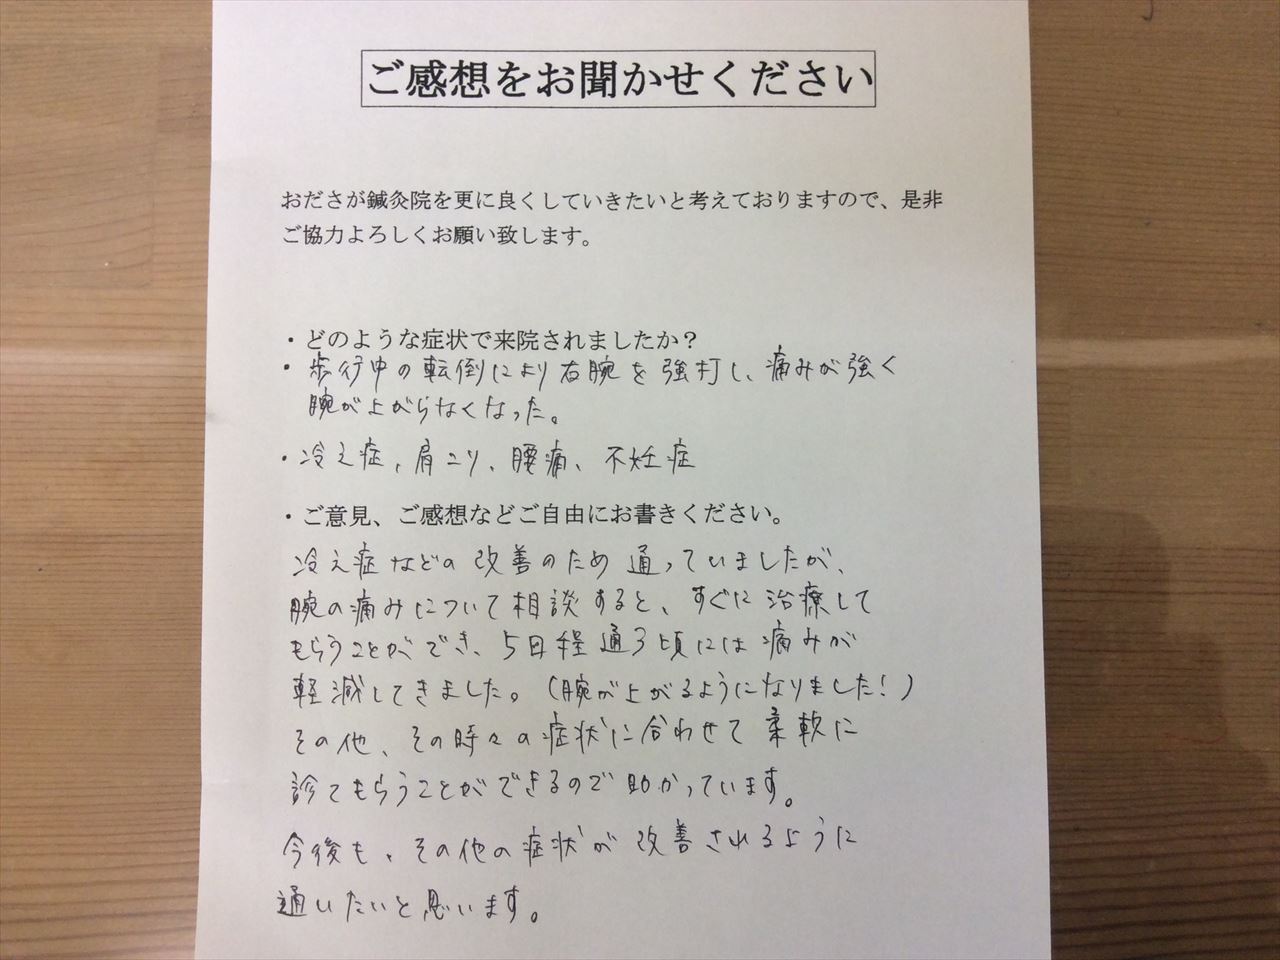 ご感想をお聞かせください
おださが鍼灸院を更に良くしていきたいと考えておりますので、是非
ご協力よろしくお願い致します。
・どのような症状で来院されましたか？
・歩行中の転倒により右腕を強打し、痛みが強く
腕が上がらなくなった。
・冷え症、肩こり、腰痛、不妊症
・ご意見、ご感想などご自由にお書きください。
冷え症などの改善のため通っていましたが、
腕の痛みについて相談すると、すぐに治療して
もらうことができ、5日程通う頃には痛みが
軽減してきました。（腕が上がるようになりました！）
その他、その時々の症状に合わせて柔軟に
診てもらうことができるので助かっています。
今後も、その他の症状が改善されるように
通いたいと思います。